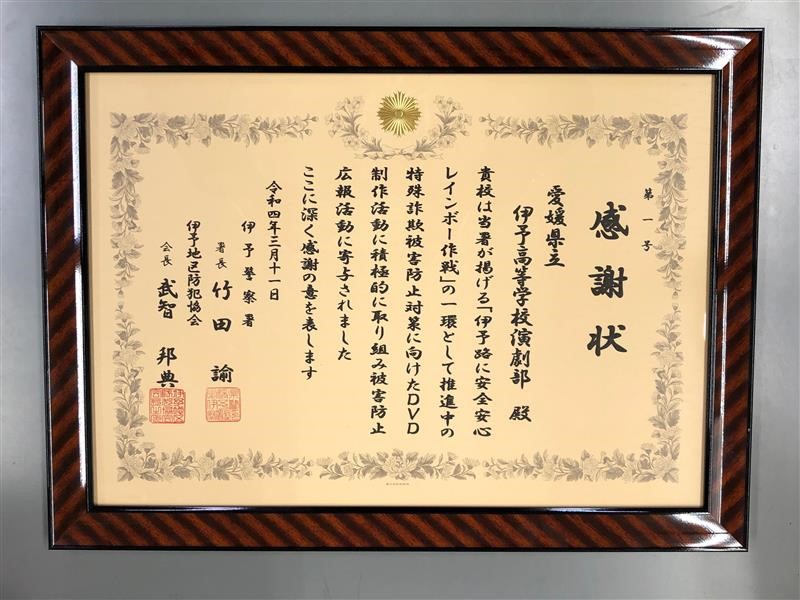 第一号
感謝状
愛媛県立
伊予高等学校演劇部 殿
貴校は当署が掲げる「伊予路に安全安心
レインボー作戦」の一環として推進中の
特殊詐欺被害防止対策に向けたDVD
制作活動に積極的に取り組み被害防止
広報活動に寄与されました
ここに深く感謝の意を表します
令和四年三月十一日
伊予警察署
署長 竹田 諭
伊予地区防犯協会
会長 武智 邦典